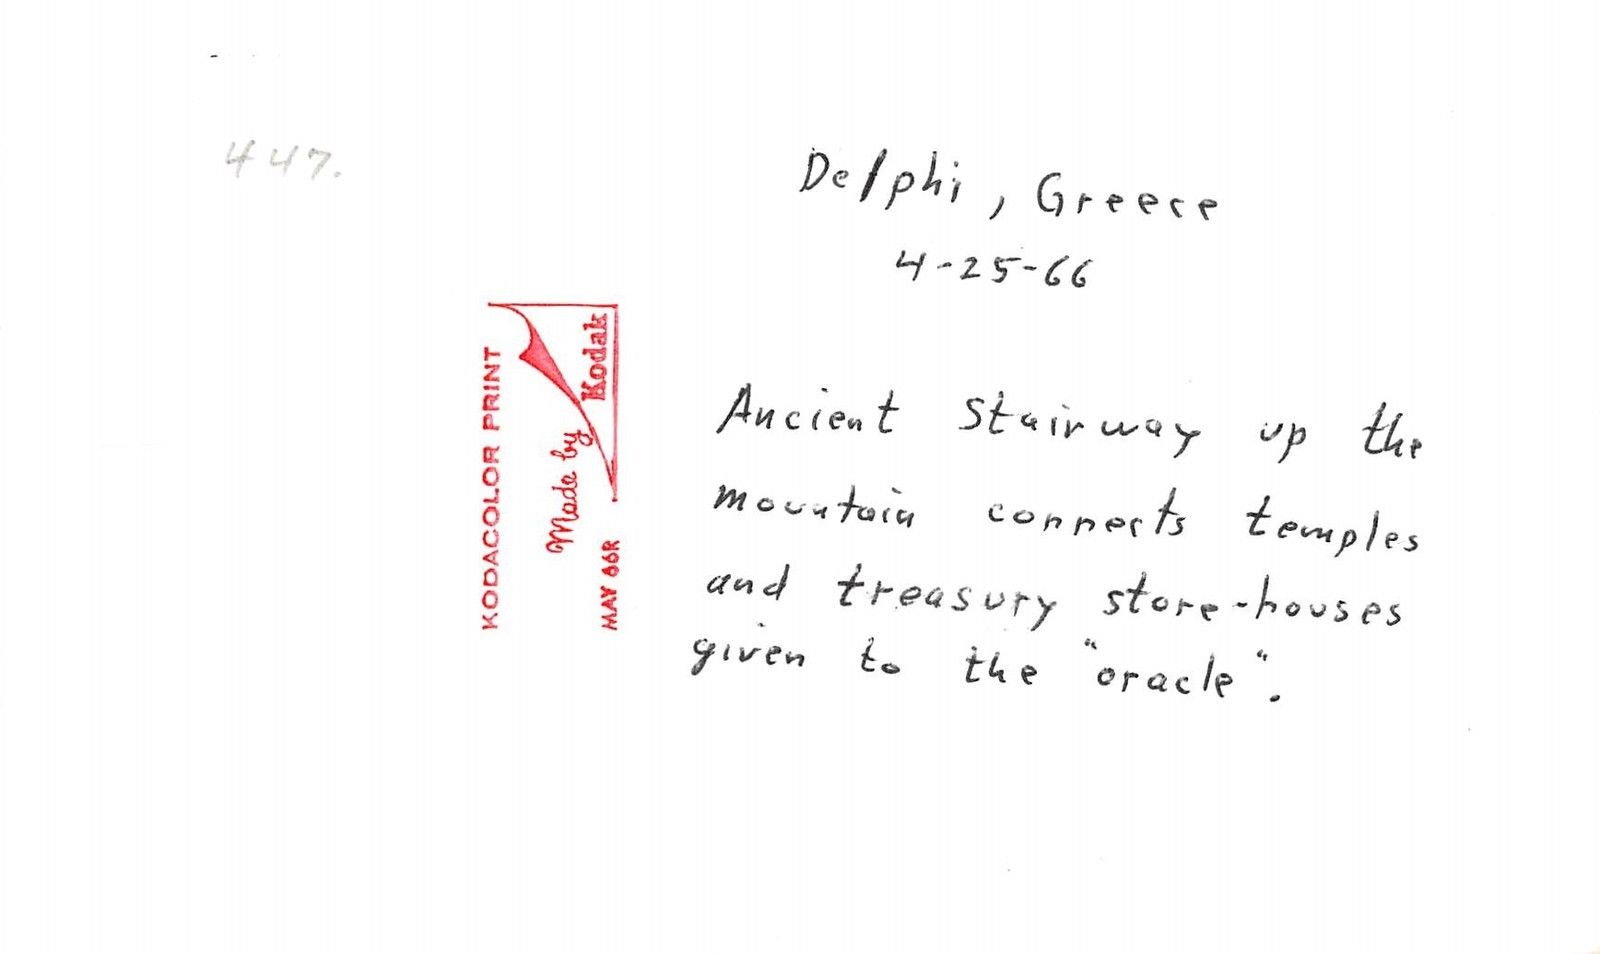 447.
Delphi, Greece
4-25-66
KODACOLOR PRINT
Made by
Kodak
MAY 66R
Ancient Stairway up the
mountain connects temples
and treasury store-houses
given to the "oracle".